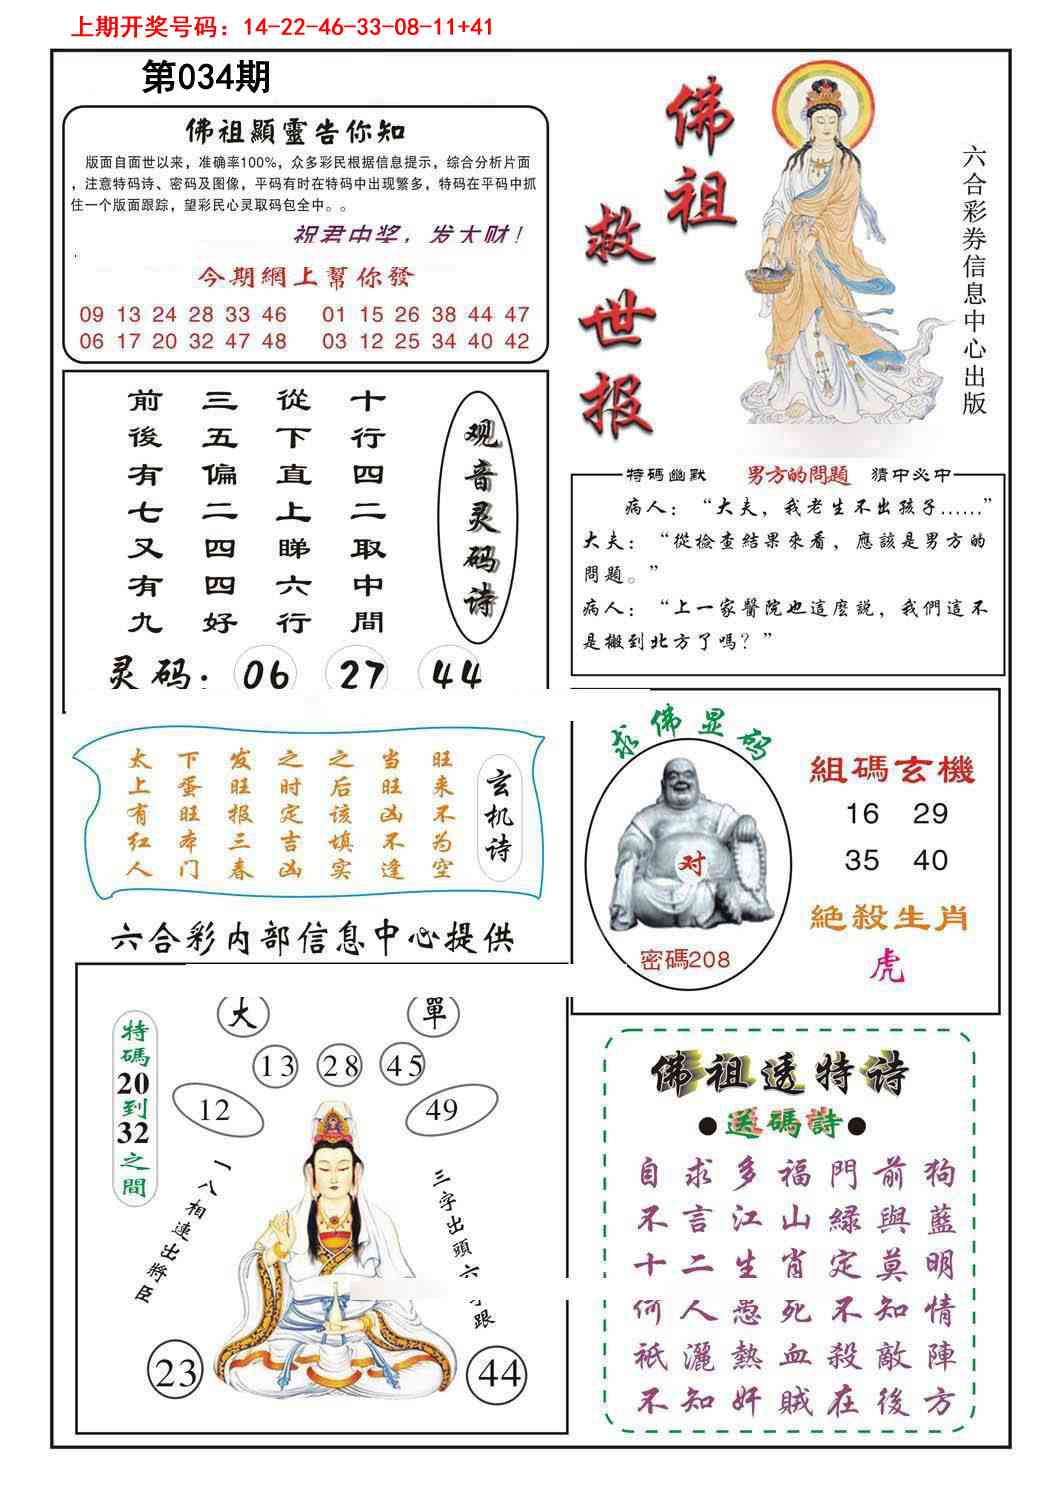 上期开奖号码：14-22-46-33-08-11+41
第034期
佛祖顯靈告你知
版面自面世以来，准确率100%，众多彩民根据信息提示，综合分析片面
，注意特码诗、密码及图像，平码有时在特码中出现繁多，特码在平码中抓
住一个版面跟踪，望彩民心灵取码包全中。。
祝君中奖，发大财！
今期網上幫你發
09 13 24 28 33 46 01 15 26 38 44 47
06 17 20 32 47 48 03 12 25 34 40 42
佛祖
救世报
六合彩券信息中心出版
观音灵码诗
十行四二取中間
從下直上睇六行
三五偏二四四好
前後有七又有九
灵码：06 27 44
特碼幽默 男方的問題 猜中必中
病人：“大夫，我老生不出孩子……”
大夫：“從檢查結果來看，應該是男方的
問題。”
病人：“上一家醫院也這麽説，我們這不
是搬到北方了嗎？”
玄机诗
旺来不为空
当旺凶不逢
之后该填实
之时定吉凶
发旺报三春
下蛋旺本门
太上有红人
求佛显码
对
密碼208
組碼玄機
16 29
35 40
絕殺生肖
虎
六合彩内部信息中心提供
特碼20到32之間
大 單
13 28 45
12 49
一八相連出將臣
三字出頭六
跟
23 44
佛祖透特诗
●送碼詩●
自求多福門前狗
不言江山綠與藍
十二生肖定莫明
何人愚死不知情
衹灑熱血殺敵陣
不知奸賊在後方